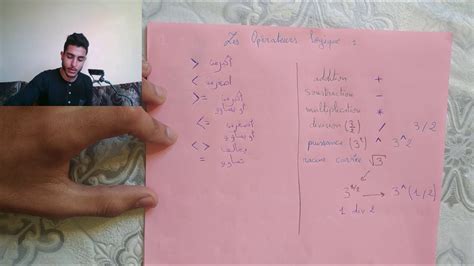 Les Opérateurs logique :
> أكبر من
< أصغر من
>= أكبر
أو تساوي
<= أصغر
أو تساوي
< >
= تساوي
addition +
soustraction -
multiplication *
division (3/2) / 3/2
puissance (3²) ^ 3^2
racine carrée √3
3^(1/2) → 3^(1/2)
1 div 2